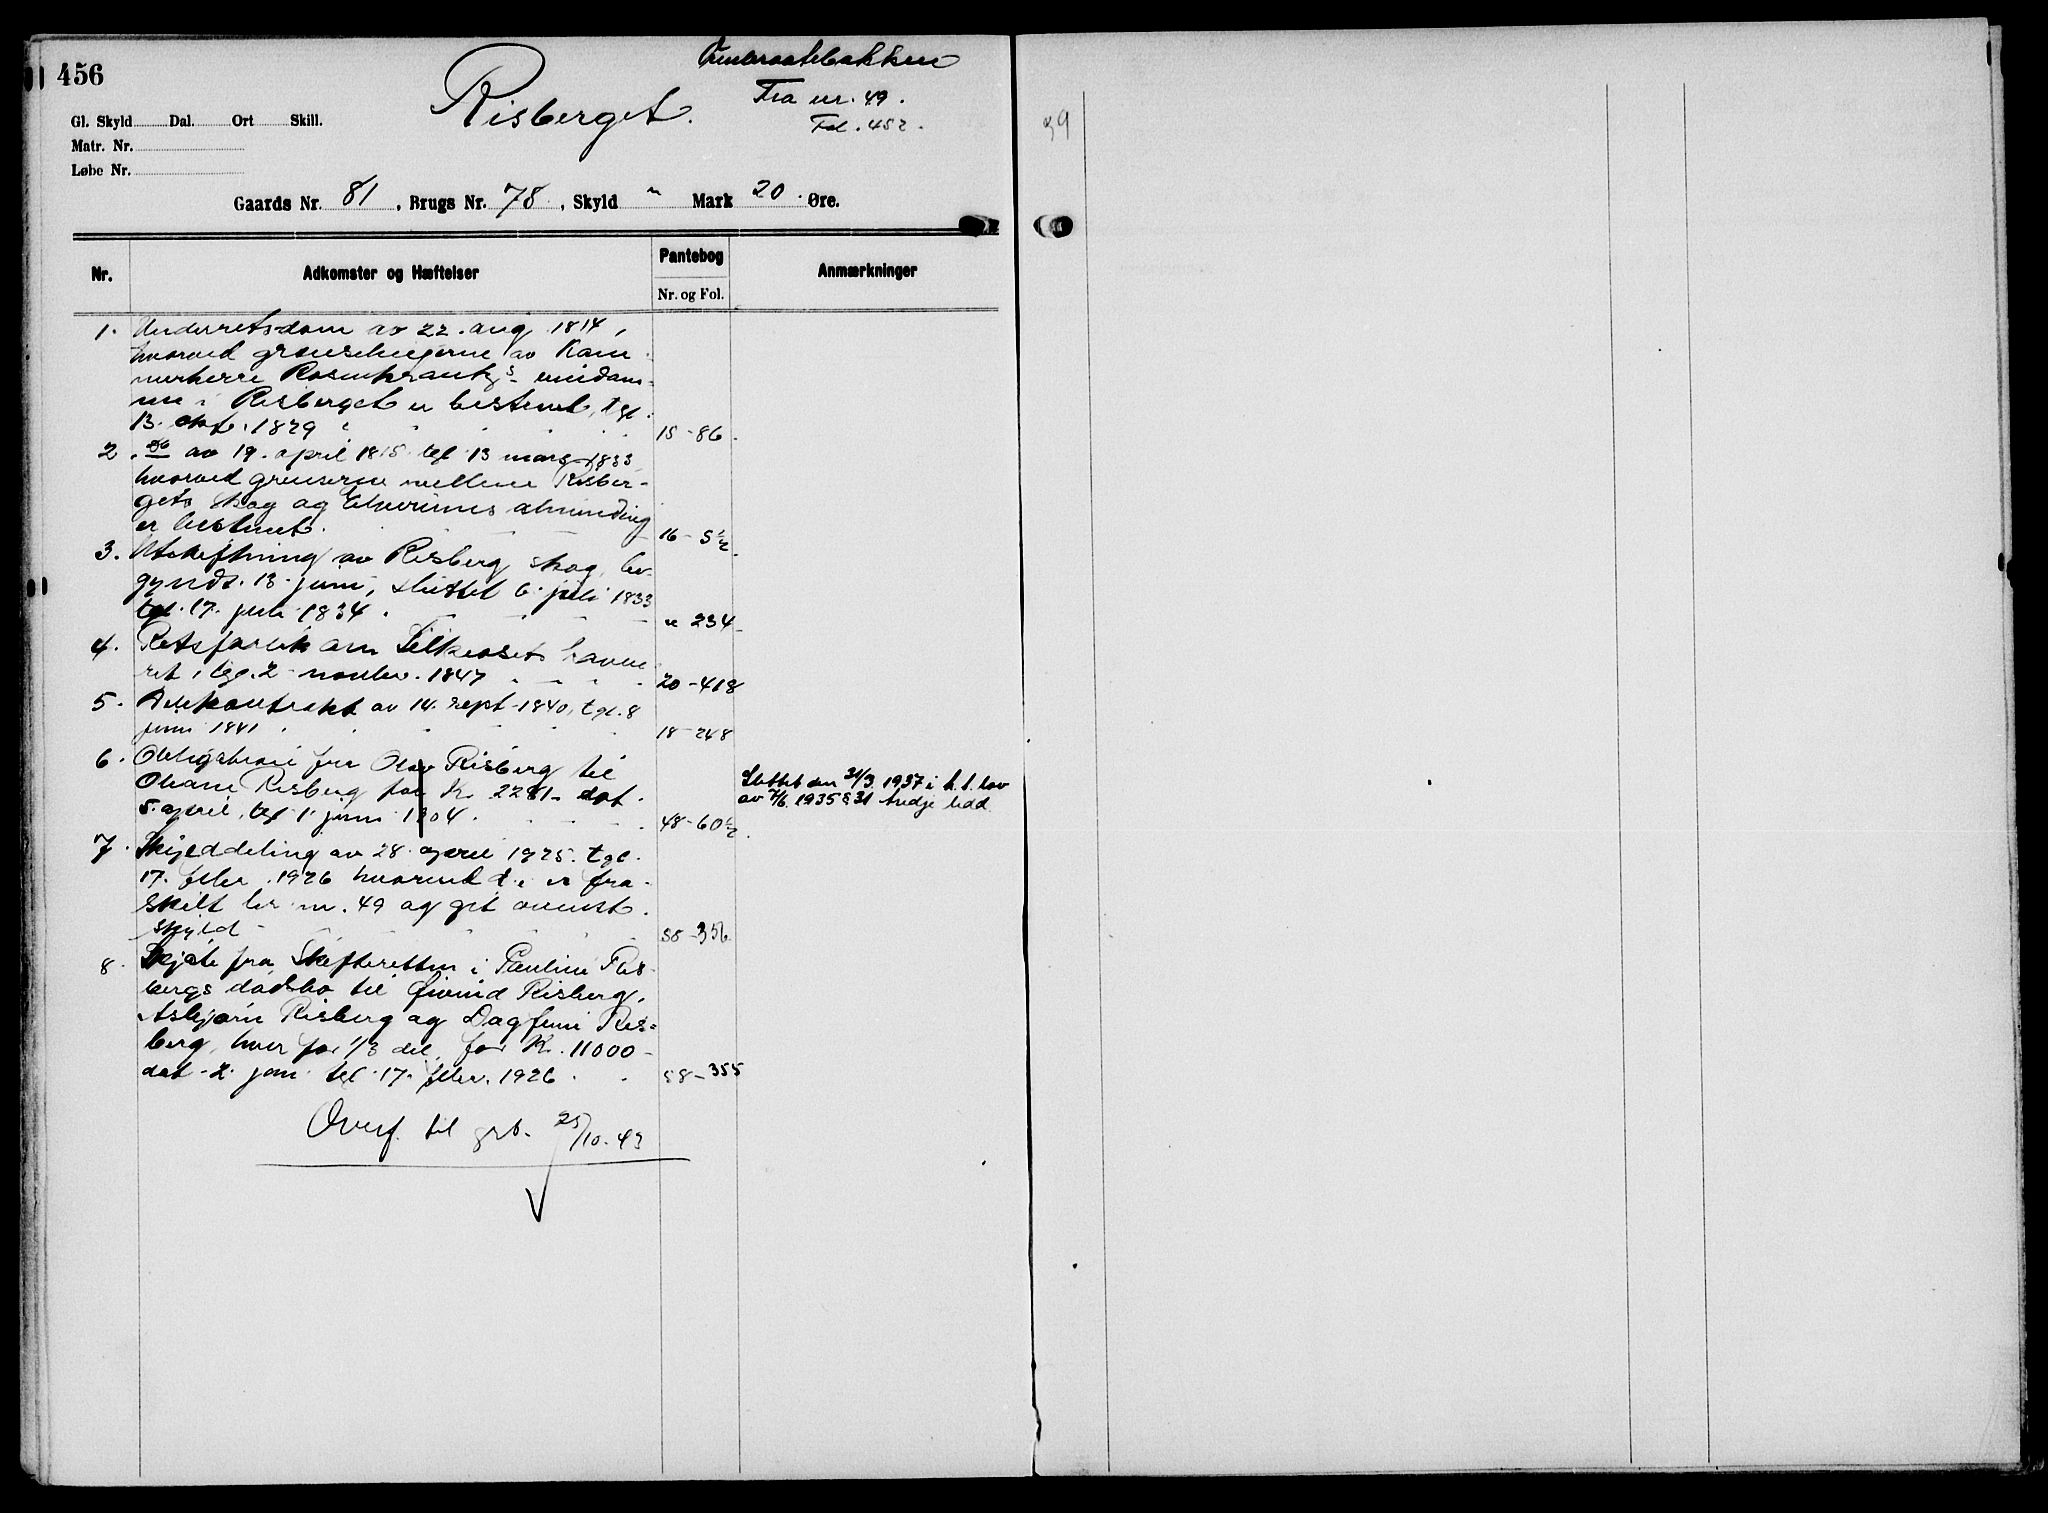 456
Risberget.
Fra nr. 49.
Fol. 452.
Gl. Skyld Dal. Ort Skill.
Matr. Nr.
Løbe Nr.
Gaards Nr. 81, Brugs Nr. 78, Skyld " Mark 20 Øre.
39
Nr. Adkomster og Hæftelser Pantebog Nr. og Fol. Anmærkninger
1. Underretsdom av 22. aug. 1814,
hvorved grænselinjerne av Kam-
merherre Rosenkrantz's eiendom-
me i Risberget er bestemt, tgl.
13. okt. 1829 15-86.
2. do av 19. april 1815 tgl 13 mars 1833
hvorved grenserne mellem Risber-
gets skog og Elverums alminding
er bestemt. 16-5
3. Utskiftning av Risberg skog, be-
gyndt 13. juni, sluttet 6. juli 1833
tgl. 17. juli 1834. " 234
4. Retsforlik om
ret, tgl. 2 novbr. 1847 20-418
5. Delekontrakt av 14. sept. 1840, tgl. 8
juni 1841 18-248
6. Obligation fra Olav Risberg til
Oliane Risberg for kr. 2281- dat.
5. april, tgl 1. juni 1904. 48-60
Slettet den 31/3 1937 i h. t. lov
av 7/6 1935 § 31 tredje ledd.
7. Skylddeling av 28. april 1925. tgl.
17. febr. 1926 hvorved d. e. er fra-
skilt br. nr. 49 og git ovenst.
skyld 58-356
8. Skjøte fra Skifteretten i Pauline Ris-
bergs dødsbo til Øivind Risberg,
Asbjørn Risberg og Dagfinn Ris-
berg, hver for 1/3 del, for kr. 11000-
dat. 2. jan. tgl. 17. febr. 1926. 58-355
Overf. til grb. 25/10-43